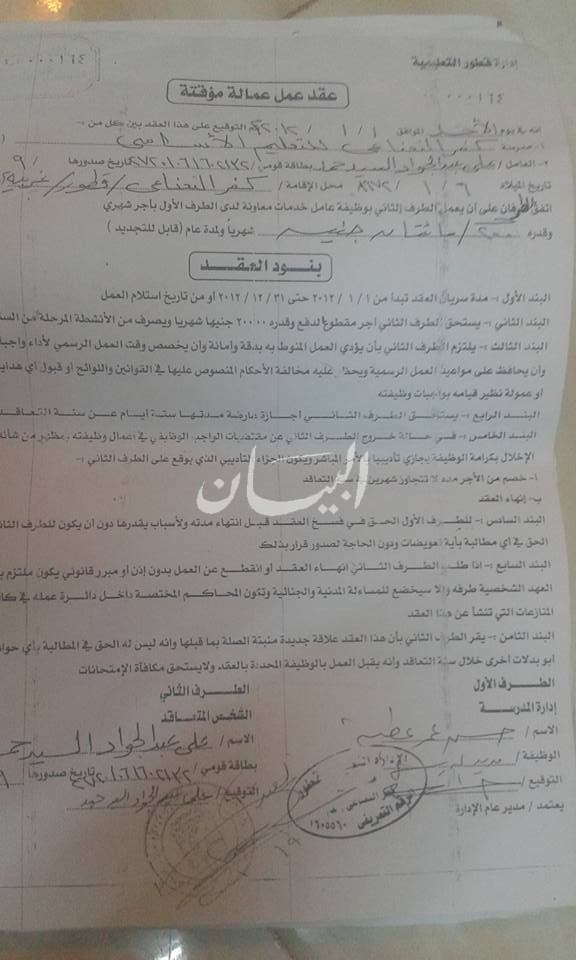 إدارة قطور التعليمية
٠٠٠١٦٤
٠٠٠٠١٦٤
عقد عمل عمالة مؤقتة
إنه في يوم الأحد الموافق ١ / ١ / ٢٠١٢ م التوقيع على هذا العقد بين كل من :-
١- مدرسة كفر النعناعى للتعليم الأساسى
٢- العامل / على عبد الجواد السيد حماد بطاقة قومى تاريخ صدورها / ٩
تاريخ الميلاد ٦ / ١ / محل الإقامة / كفر النعناعى / قطور / غربية
اتفق الطرفان على أن يعمل الطرف الثاني بوظيفة عامل خدمات معاونة لدى الطرف الأول بأجر شهري
وقدره ٢٠٠ / مائتان جنيه شهرياً ولمدة عام ( قابل للتجديد )
بنود العقد
البند الأول :- مدة سريان العقد تبدأ من ١ / ١ / ٢٠١٢ حتى ٣١ / ١٢ / ٢٠١٢ أو من تاريخ استلام العمل
البند الثاني :- يستحق الطرف الثاني أجر مقطوع الدفع وقدره ٢٠٠٠٠ جنيها شهريا ويصرف من الأنشطة المرحلة من
البند الثالث :- يلتزم الطرف الثاني بأن يؤدي العمل المنوط به بدقة وأمانة وأن يخصص وقت العمل الرسمي لأداء
وأن يحافظ على مواعيد العمل الرسمية ويحظر عليه مخالفة الأحكام المنصوص عليها في القوانين واللوائح أو قبول أي هدايا
أو عمولة نظير قيامه بواجبات وظيفته
البند الرابع :- يستحق الطرف الثاني أجازة عارضة مدتها ستة أيام عن سنة التعاقد
البند الخامس :- في حالة خروج الطرف الثاني عن مقتضيات الواجب الوظيفي في أعمال وظيفته بمظهر من شأنه
الإخلال بكرامة الوظيفة يجازي تأديبيا المباشر ويكون الجزاء التأديبي الذي يوقع على الطرف الثاني :-
أ- خصم من الأجر مدة لا تتجاوز شهرين في سنة التعاقد
ب- إنهاء العقد
البيان
البند السادس :- للطرف الأول الحق في فسخ العقد قبل انتهاء مدته ولأسباب يقدرها دون أن يكون للطرف
الحق في أي مطالبة بأية تعويضات ودون الحاجة لصدور قرار بذلك
البند السابع :- إذا طلب الطرف الثاني إنهاء العقد أو انقطع عن العمل بدون إذن أو مبرر قانوني يكون ملتزم
العهد الشخصية طرفه وإلا سيخضع للمساءلة المدنية والجنائية وتكون المحاكم المختصة داخل دائرة عمله في
المنازعات التي تنشأ عن هذا العقد
البند الثامن :- يقر الطرف الثاني بأن هذا العقد علاقة جديدة منبتة الصلة بما قبلها وأنه ليس له الحق في المطالبة بأي
أو بدلات أخرى خلال سنة التعاقد وأنه يقبل العمل بالوظيفة المحددة بالعقد ولا يستحق مكافأة الإمتحانات
الطرف الأول
الطرف الثاني
إدارة المدرسة
الشخص المتعاقد
الاسم /
الاسم / على عبد الجواد السيد
الوظيفة /
بطاقة قومي / تاريخ صدورها /
التوقيع /
التوقيع /
يعتمد / مدير عام الإدارة
قطور
الرقم التعريفى
١٦٠٥٥٦٠